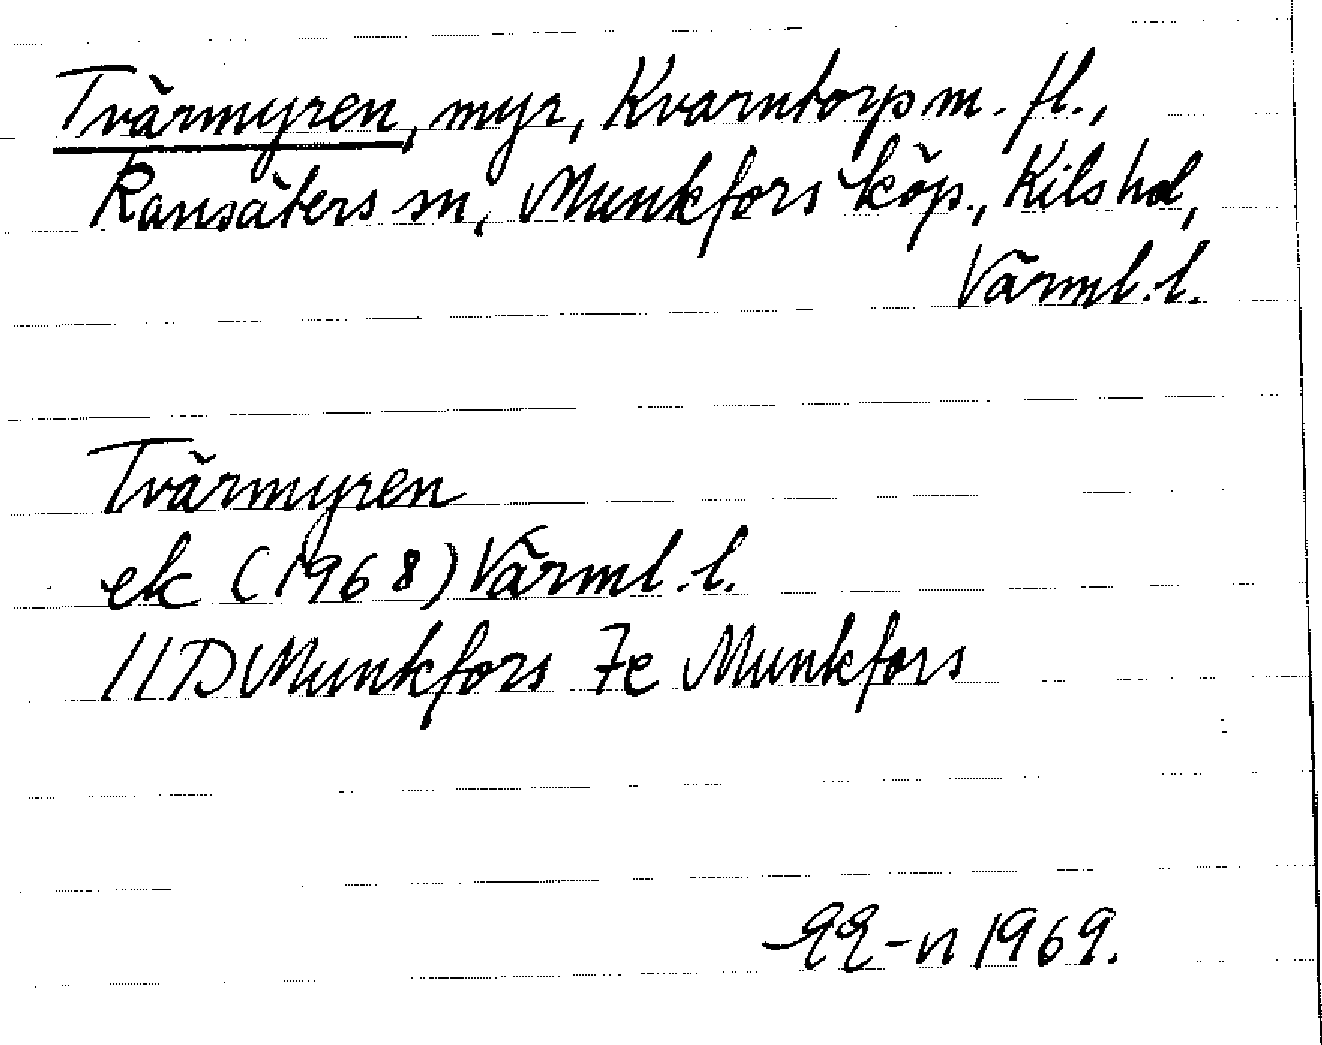 Tvärmyren, myr, Kvarntorp m. fl.,
Ransäters sn, Munkfors köp., Kils hd,
Värml. l.
Tvärmyren
ek (1968) Värml. l.
11D Munkfors 7e Munkfors
EE-n 1969.